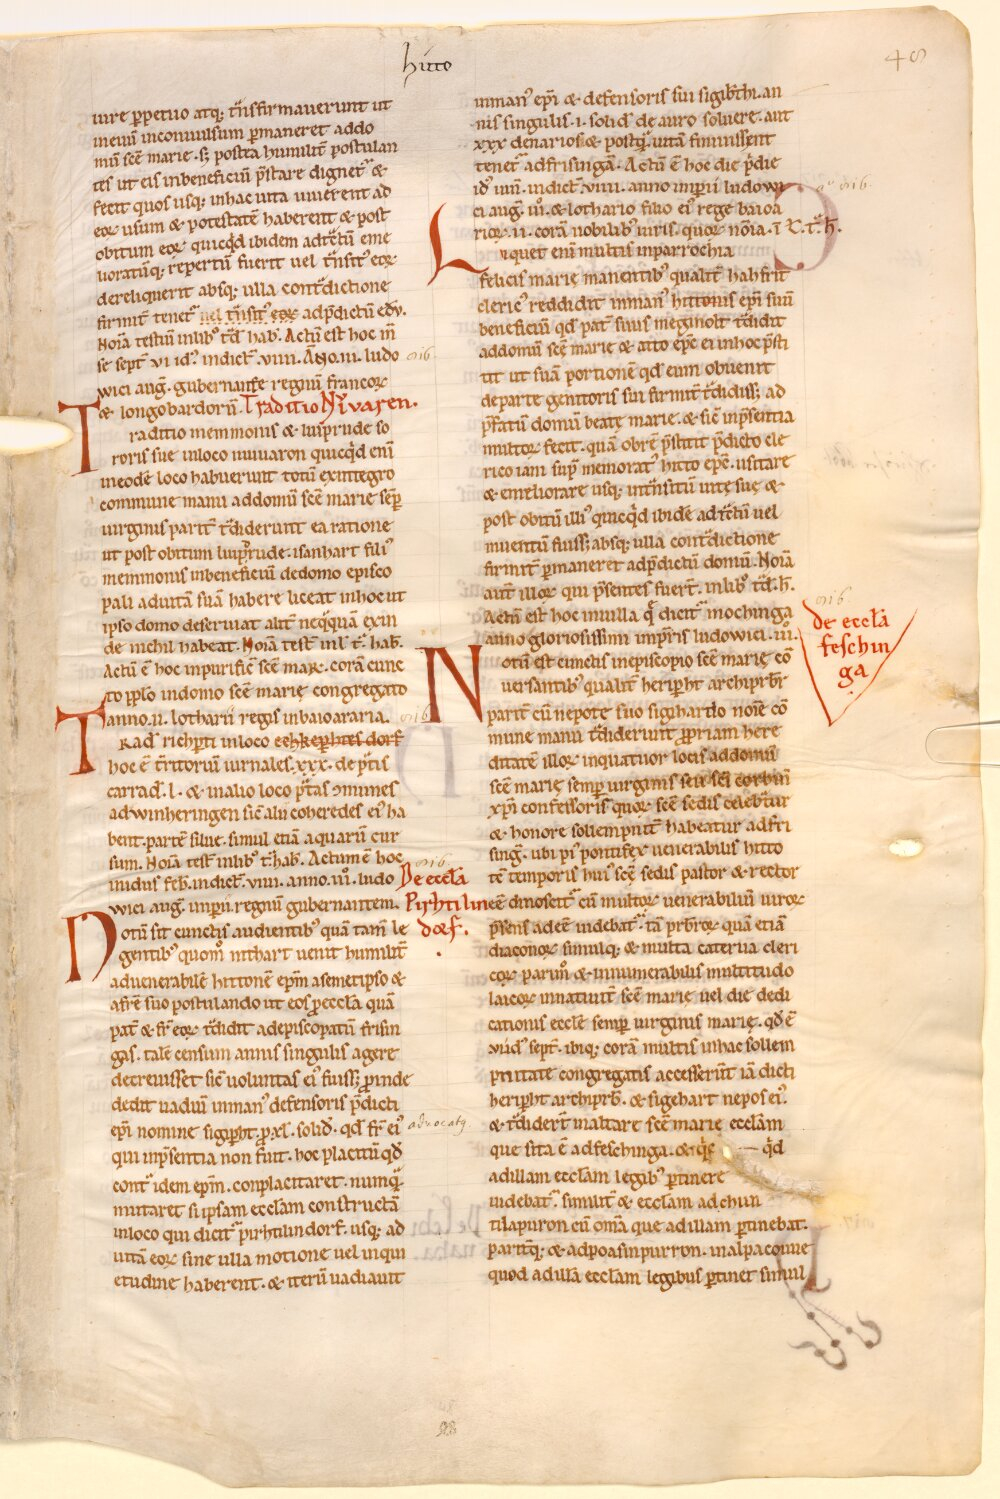 hitto
48
iure ꝑpetuo atq; t̄nsfirmaverunt ut
inevū inconvulsum ꝑmaneret addo
mū scē marie. sꝫ postea humilit̄ postulan
tes ut eis inbeneficiū p̄stare dignet᷑ &
fecit quos usq; inhac uita uiuerent ad
eoꝝ usum & potestatē haberent & post
obitum eoꝝ quicq̇d ibidem adtc̄tū eme
uoratūq; repertū fuerit uel t̄nsit᷒ eoꝝ
dereliquerit absq; ulla cont᷑dictione
firmit̄ tenet᷑ uel t̄nsit᷒ eoꝝ adp̄dictū edv.
Noīā testiū inlib᷒ t᷑d hab. Actū est hoc m̄
se sept̄ vi id᷒. indict̄. viiii. Āno. iii. ludo
wici aug̃. gubernante regnū francoꝝ
& longobardorū. Traditio Nivaren.
Traditio memmonis & luiprude so
roris sue inloco niuuaron quicq̇d enī
ineodē loco habuerunt totū exintegro
commune manu addomū scē marie semꝑ
uirginis parit̄ t᷑diderunt ea ratione
ut post obitum luiprude. isanhart fili᷒
memmonis inbeneficiū dedomo episco
pali aduitā suā habere liceat inhoc ut
ipso domo deseruiat alit̄ necq̇quā exin
de nichil habeat. Noīā test̄ inl t᷑. hab̄.
Actū ē hoc inpurific̄ scē maꝝ. corā cunc
to ip̄so indomo scē marie congregato
anno. ii. lotharii regis inbaioararia.
Trad᷒ richꝑti inloco eckkeꝑhtes dorf
hoc ē t̄ritoriū iurnales. xxx. de p᷑tis
carrad. l. & inalio loco p᷑tas omnimes
adwinheringen sic̄ alii coheredes ei᷒ ha
bent. partē silue. simul etiā aquarū cur
sum. Noīā test̄ inlib᷒ t᷑. hab̄. Actum ē hoc
inidus feb̄. indict̄. viiii. anno. iii᷒. ludo De eccl̄a
wici aug̃. inp̄rii. regnū gubernantem. Pirhtilin
Notū sit cunctis audientib᷒ quā tam le dorf.
gentib᷒ quom̊ nithart uenit humilit̄
aduenerabilē hittonē ep̄m asemetipso &
afr̄e suo postulando ut eos ꝓeccl̄a quā
pat̄ & fr̄ eoꝝ t᷑didit adepiscopatū frisin
gas. talē censum annis singulis agere
decreuisset sic̄ uoluntas ei᷒ fuissꝫ ꝓinde
dedit uadiū inman᷒ defensoris p̄dicti
ep̄i nomine sigiꝑht. ꝓ. xl. solid᷒. qđ fr̄ ei᷒ advocatꝫ
qui inp̄sentia non fuit. hoc placitū qđ
cont᷑ idem ep̄m. conplacitaret. numq̄
mutaret si ipsam eccl̄am constructā
inloco qui dicit᷑ pirhtilindorf. usq; ad
uitā eoꝝ sine ulla motione uel inqui
etudine haberent. & iterū uadiauit
inman᷒ ep̄i & defensoris sui sigib̄hti. an
nis singulis. i. solid᷒ de auro soluere. aut
xxx denarios & postq̄ uitā finiuissent
tenet᷑ adfrisingā. Actū ē hoc die p̄die
id᷒ iuni. indict̄. viiii. anno inp̄rii ludowi
ci aug̃. iii᷒. & lothario filio ei᷒ rege baioa
rioꝝ. ii. corā nobilib᷒ uiris. quoꝝ noīa. ī l. t᷑. h̄.
Liquet enī multis inparrochia
felicis marie manentib᷒ qualit̄ hahfrit
cleric᷒ reddidit inman᷒ hittonis ep̄i suū
beneficiū qđ pat̄ suus meginolt t᷑didit
addomū scē marie & atto ep̄c ei inhoc p̄sti
tit ut suā portionē qđ eum obuenit
departe genitoris sui firmit̄ t᷑didissꝫ ad
p̄fatū domū beatę marie. & sic̄ inp̄sentia
multoꝝ fecit. quā obrē p̄stitit p̄dicto cle
rico iam sup̄ memorat᷒ hitto ep̄c. usitare
& emeliorare usq; int̄nsitū uitę suę &
post obitū illi᷒ quicq̇d ibidē adtc̄tū uel
inuentū fuissꝫ absq; ulla cont᷑dictione
firmit̄ ꝑmaneret adp̄dictū domū. Noīā
aut̄ illoꝝ qui p̄sentes fuert̄. inlib᷒ t᷑d. h̄.
Actū est hoc inuilla q̄ dicit᷑ mochinga
anno gloriosissimi imp̄ris ludowici. iii᷒.
de eccl̄a
feschin
ga
Notū est cunctis inepiscopio scē marię cō
uersantib᷒ qualit̄ heriꝑht archiprb̄r
parit̄ cū nepote suo sigihardo noīe cō
mune manu t᷑diderunt ꝓpriam here
ditatē illoꝝ inquatuor locis addomū
scē marię semꝑ uirginis seu sc̄i corbini
xp̄i confessoris quoꝝ scē sedis celeb᷑tur
& honore sollempnit̄ habeatur adfri
sing̃. ubi pi᷒ pontifex uenerabilis hitto
tē temporis hui᷒ scē sedis pastor & rector
eē dinoscit᷑ cū multoꝝ uenerabiliū uiroꝝ
p̄sens adeē uidebat᷑. tā prb̄roꝝ quā etiā
diaconoꝝ similiq; & multa caterua cleri
coꝝ parum̊ & innumerabilis multitudo
laicoꝝ innatiuit̄ scē marię uel die dedi
cationis eccl̄e semꝑ uirginis marię. qđ ē
viid᷒ sept̄. ibiq; corā multis inhac sollem
pnitate congregatis accesserūt iā dicti
heriꝑht archiprb̄. & sigehart nepos ei᷒.
& t᷑didert̄ inaltare scē marie eccl̄am
que sita ē adfeschinga. & q̇c q̇d
adillam eccl̄am legib᷒ ꝑtinere
uidebat᷑. similit̄ & eccl̄am adchun
tilapuron cū om̄a que adillam ꝑtinebat.
paritq;. & adpoasinpurron. inalpacoune
quod adillā eccl̄am legibus ꝑtinet simul